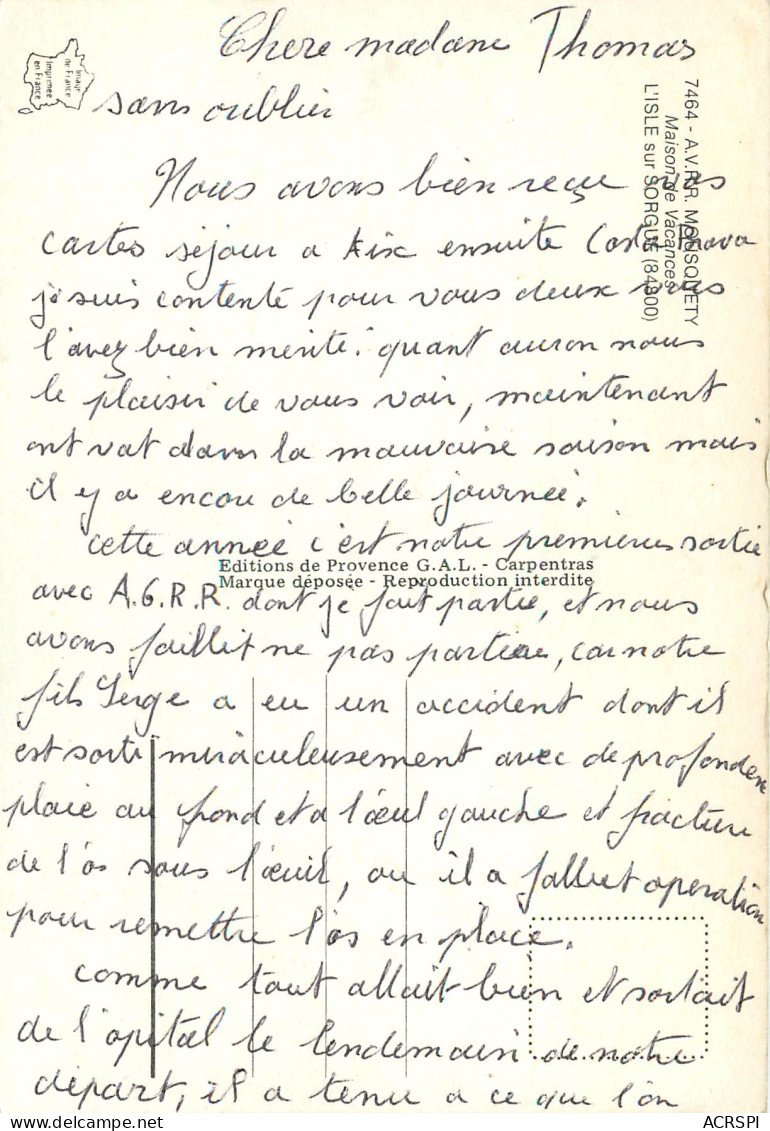 Chere madame Thomas
sans oublier
Nous avons bien reçu vos
cartes séjour a Aix ensuite Costa Brava
je suis contente pour vous deux vous
l'avez bien merité. quant auron nous
le plaisir de vous voir, maintenant
ont vat dans la mauvaise saison mais
il y a encore de belle journée.
cette année c'est notre premieres sortie
avec A.G.R.R. dont je fait partie, et nous
avons faillit ne pas partire, car notre
fils Serge a eu un accident dont il
est sorti miraculeusement avec de profonden
plaie au frond et a l'œul gauche et fracture
de l'ôs sous l'œuil, ou il a fallut operation
pour remettre l'ôs en place.
comme tout allait bien et sortait
de l'opital le lendemain de notre
départ, il a tenu a ce que l'on
Image
de France
Imprimée
en France
7464 - A.V.R.R. MOUSQUETY
Maison de Vacances
L'ISLE sur SORGUE (84800)
Editions de Provence G.A.L. - Carpentras
Marque déposée - Reproduction interdite
ACRSPI